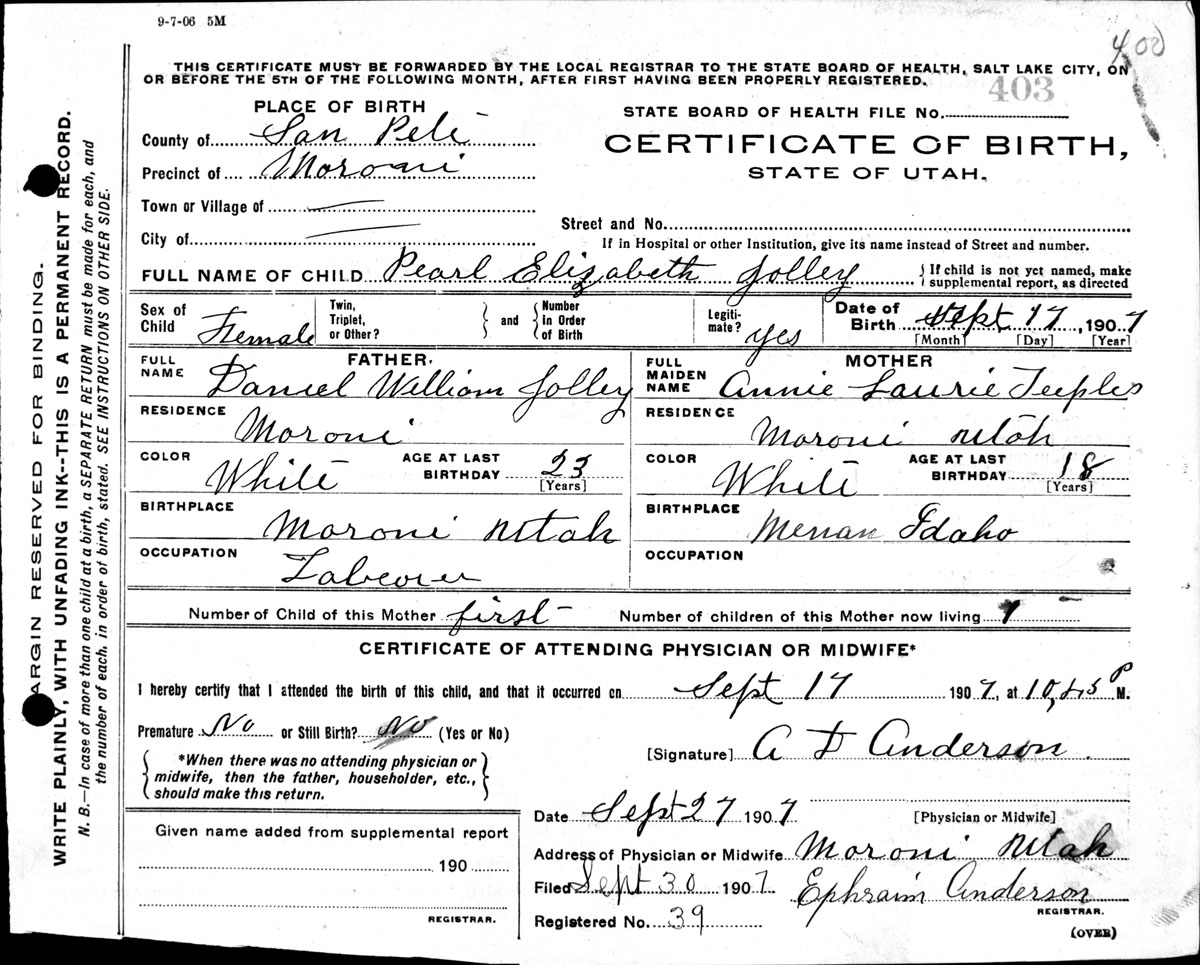 9-7-06 5M
400
THIS CERTIFICATE MUST BE FORWARDED BY THE LOCAL REGISTRAR TO THE STATE BOARD OF HEALTH, SALT LAKE CITY, ON
OR BEFORE THE 5TH OF THE FOLLOWING MONTH, AFTER FIRST HAVING BEEN PROPERLY REGISTERED.
403
PLACE OF BIRTH
STATE BOARD OF HEALTH FILE No.
County of San Pete
CERTIFICATE OF BIRTH,
Precinct of Moroni
STATE OF UTAH.
Town or Village of —
Street and No.
City of —
If in Hospital or other Institution, give its name instead of Street and number.
FULL NAME OF CHILD Pearl Elizabeth Jolley { If child is not yet named, make
supplemental report, as directed
Sex of Child Female
Twin, Triplet, or Other? } and { Number in Order of Birth
Legiti-mate? yes
Date of Birth Sept 17, 1907
[Month] [Day] [Year]
FATHER.
MOTHER
FULL NAME Daniel William Jolley
FULL MAIDEN NAME Annie Laurie Teeples
RESIDENCE Moroni
RESIDENCE Moroni Utah
COLOR White AGE AT LAST BIRTHDAY 23 [Years]
COLOR White AGE AT LAST BIRTHDAY 18 [Years]
BIRTHPLACE Moroni Utah
BIRTHPLACE Menan Idaho
OCCUPATION Labeorer
OCCUPATION
Number of Child of this Mother first Number of children of this Mother now living 1
CERTIFICATE OF ATTENDING PHYSICIAN OR MIDWIFE*
I hereby certify that I attended the birth of this child, and that it occurred on Sept 17 1907, at 10,45 P M.
Premature No or Still Birth? No (Yes or No)
[Signature] A D Anderson
*When there was no attending physician or
midwife, then the father, householder, etc.,
should make this return.
Date Sept 27 1907
[Physician or Midwife]
Given name added from supplemental report
190
REGISTRAR.
Address of Physician or Midwife Moroni Utah
Filed Sept 30 1907 Ephraim Anderson
REGISTRAR.
Registered No. 39
(OVER)
ARGIN RESERVED FOR BINDING.
WRITE PLAINLY, WITH UNFADING INK--THIS IS A PERMANENT RECORD.
N. B.—In case of more than one child at a birth, a SEPARATE RETURN must be made for each, and
the number of each. in order of birth, stated. SEE INSTRUCTIONS ON OTHER SIDE.